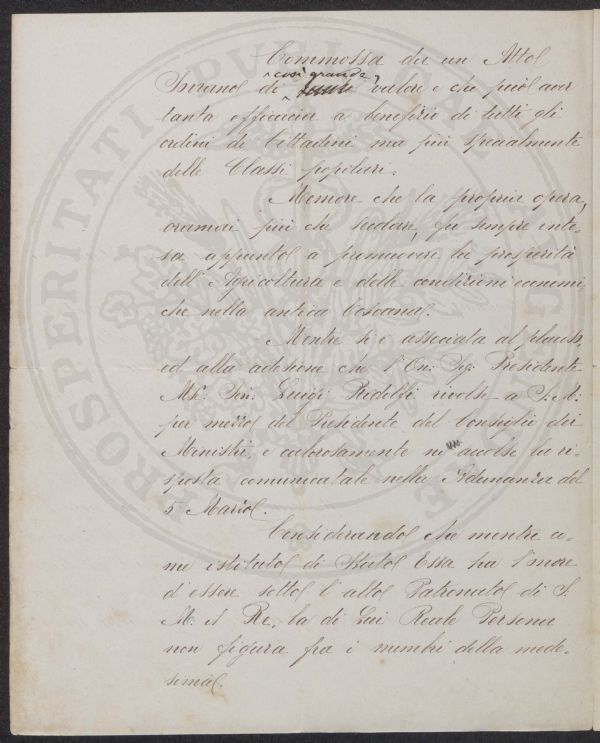 Commossa da un Atto
Sovrano di ^così grande^ valore e che può aver
tanta efficacia a benefizio di tutti gli
ordini di Cittadini ma più specialmente
delle Classi popolari.
Memore che la propria opera,
oramai più che secolare, fu sempre inte-
sa appunto a promuovere la prosperità
dell'Agricoltura e delle condizioni economi
che nella antica Toscana.
Mentre si è associata al plauso,
ed alla adesione che l'On: Sig: Presidente
Mse: Sen: Luigi Ridolfi rivolse a S. M:
per mezzo del Presidente del Consiglio dei
Ministri, e calorosamente ne accolse la ri-
sposta comunicatale nella Adunanza del
5 Marzo.
Considerando che mentre co-
me istituto di Stato Essa ha l'onore
d'essere sotto l'alto Patronato di S.
M. il Re, la di Lui Reale Persona
non figura fra i membri della mede-
sima.
PROSPERITATI PUBLICAE AUGENDAE